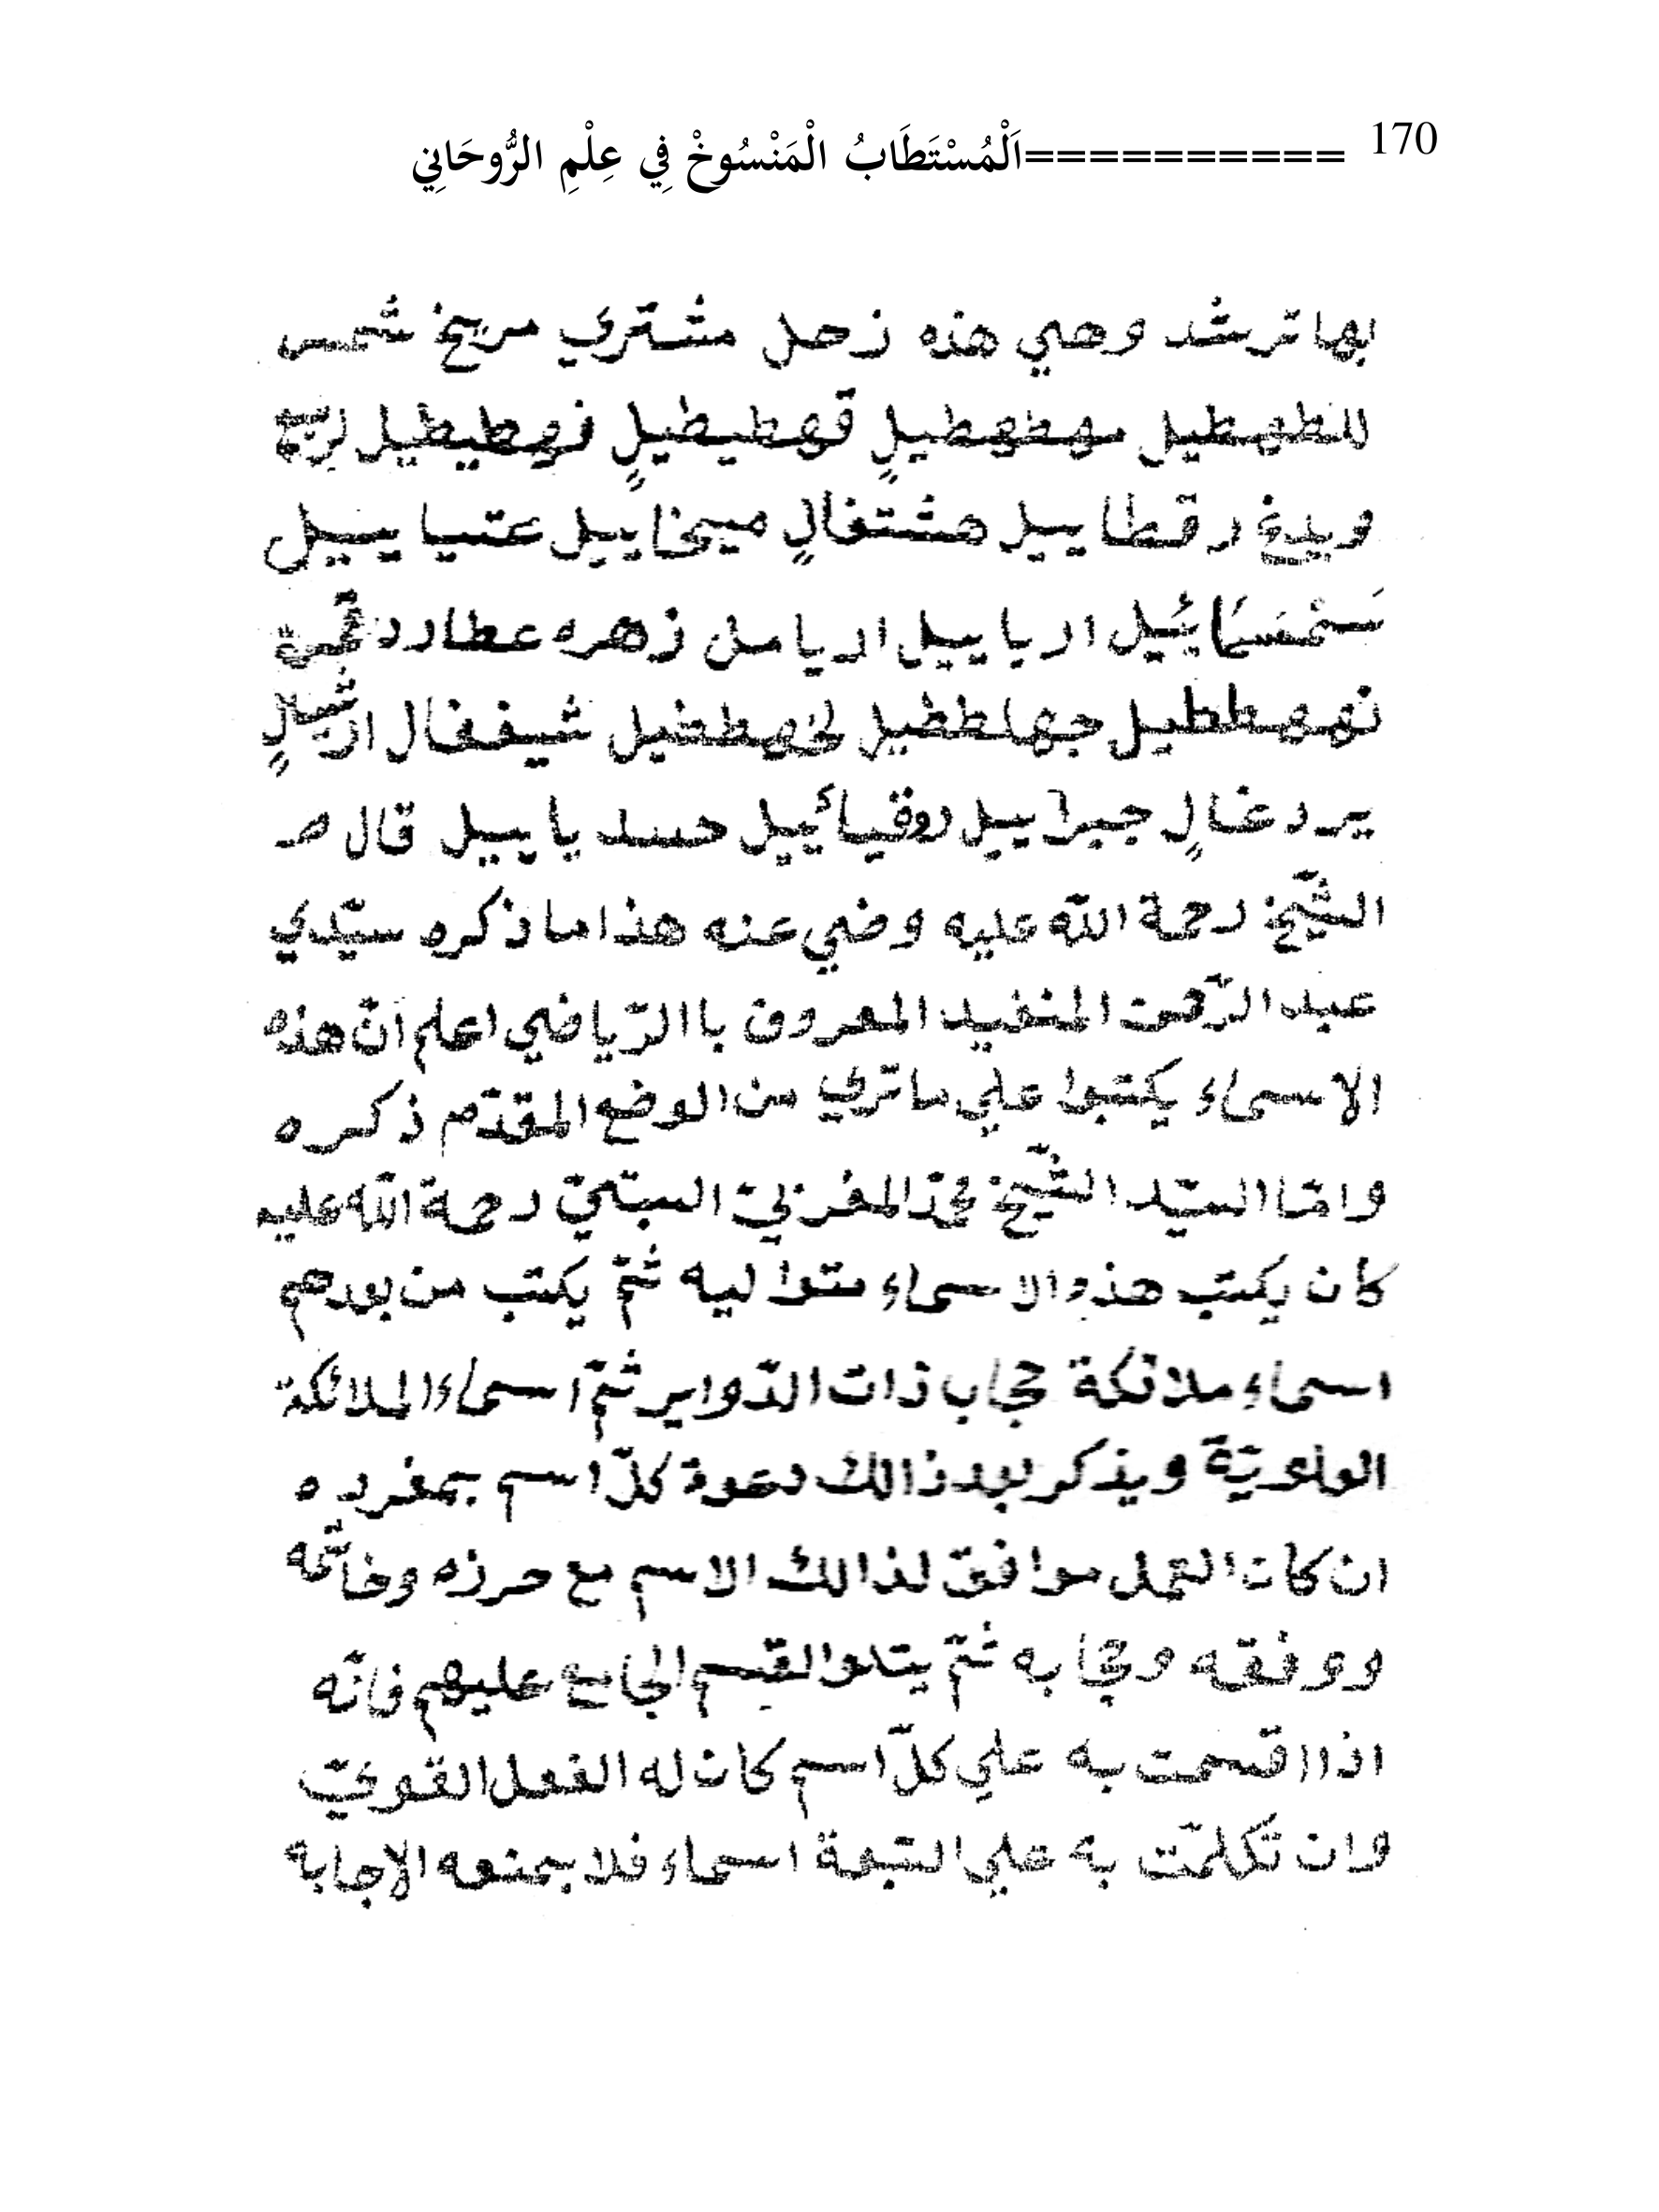 170 ==========اَلْمُسْتَطَابُ الْمَنْسُوخْ فِي عِلْمِ الرُّوحَانِي
بها ترشد وهي هذه زحل مشتري مريخ شمس
للطهطيل مهطهطيلٍ قهطيطيلٍ فهطيطيل
رقطاييل هشتغالٍ ميخاييل عتيا ييل
سَمْسَمَائِيل ارياييل زهره عطارد
نهصططيل جهلططيل لخهططيل شيففال
يرد غالٍ جبراييل روقيائيل ياييل قال ص
الشّيخ رحمة اللّه عليه وضي عنه هذا ما ذكره سيّدي
عبد الرّحمن المنفيد المعروف با الرّياضي اعلم انّ هذه
الاسماء يكتبوا علي ما تري من الوضع المقدّم ذكره
وامّا السيّد الشّيخ محمّد المغربيّ السبتيّ رحمة اللّه عليه
كان يكتب هذه الاسماء متواليه ثمّ يكتب من بعدهم
اسماء ملائكة حجاب ذات الدّواير ثمّ اسماء الملائكة
العلويّة ويذكر بعد ذالك دعوة كلّ اسم بمفرده
ان كان العمل موافق لذالك الاسم مع حرزه وخاتمه
ووفقه وحجابه ثمّ يتلوا القسم الجامع عليهم فانّه
اذا اقسمت به علي كلّ اسم كان له الفعل القويّ
وان تكلّمت به علي السّبعة اسماء فلا يمنعه الاجابة